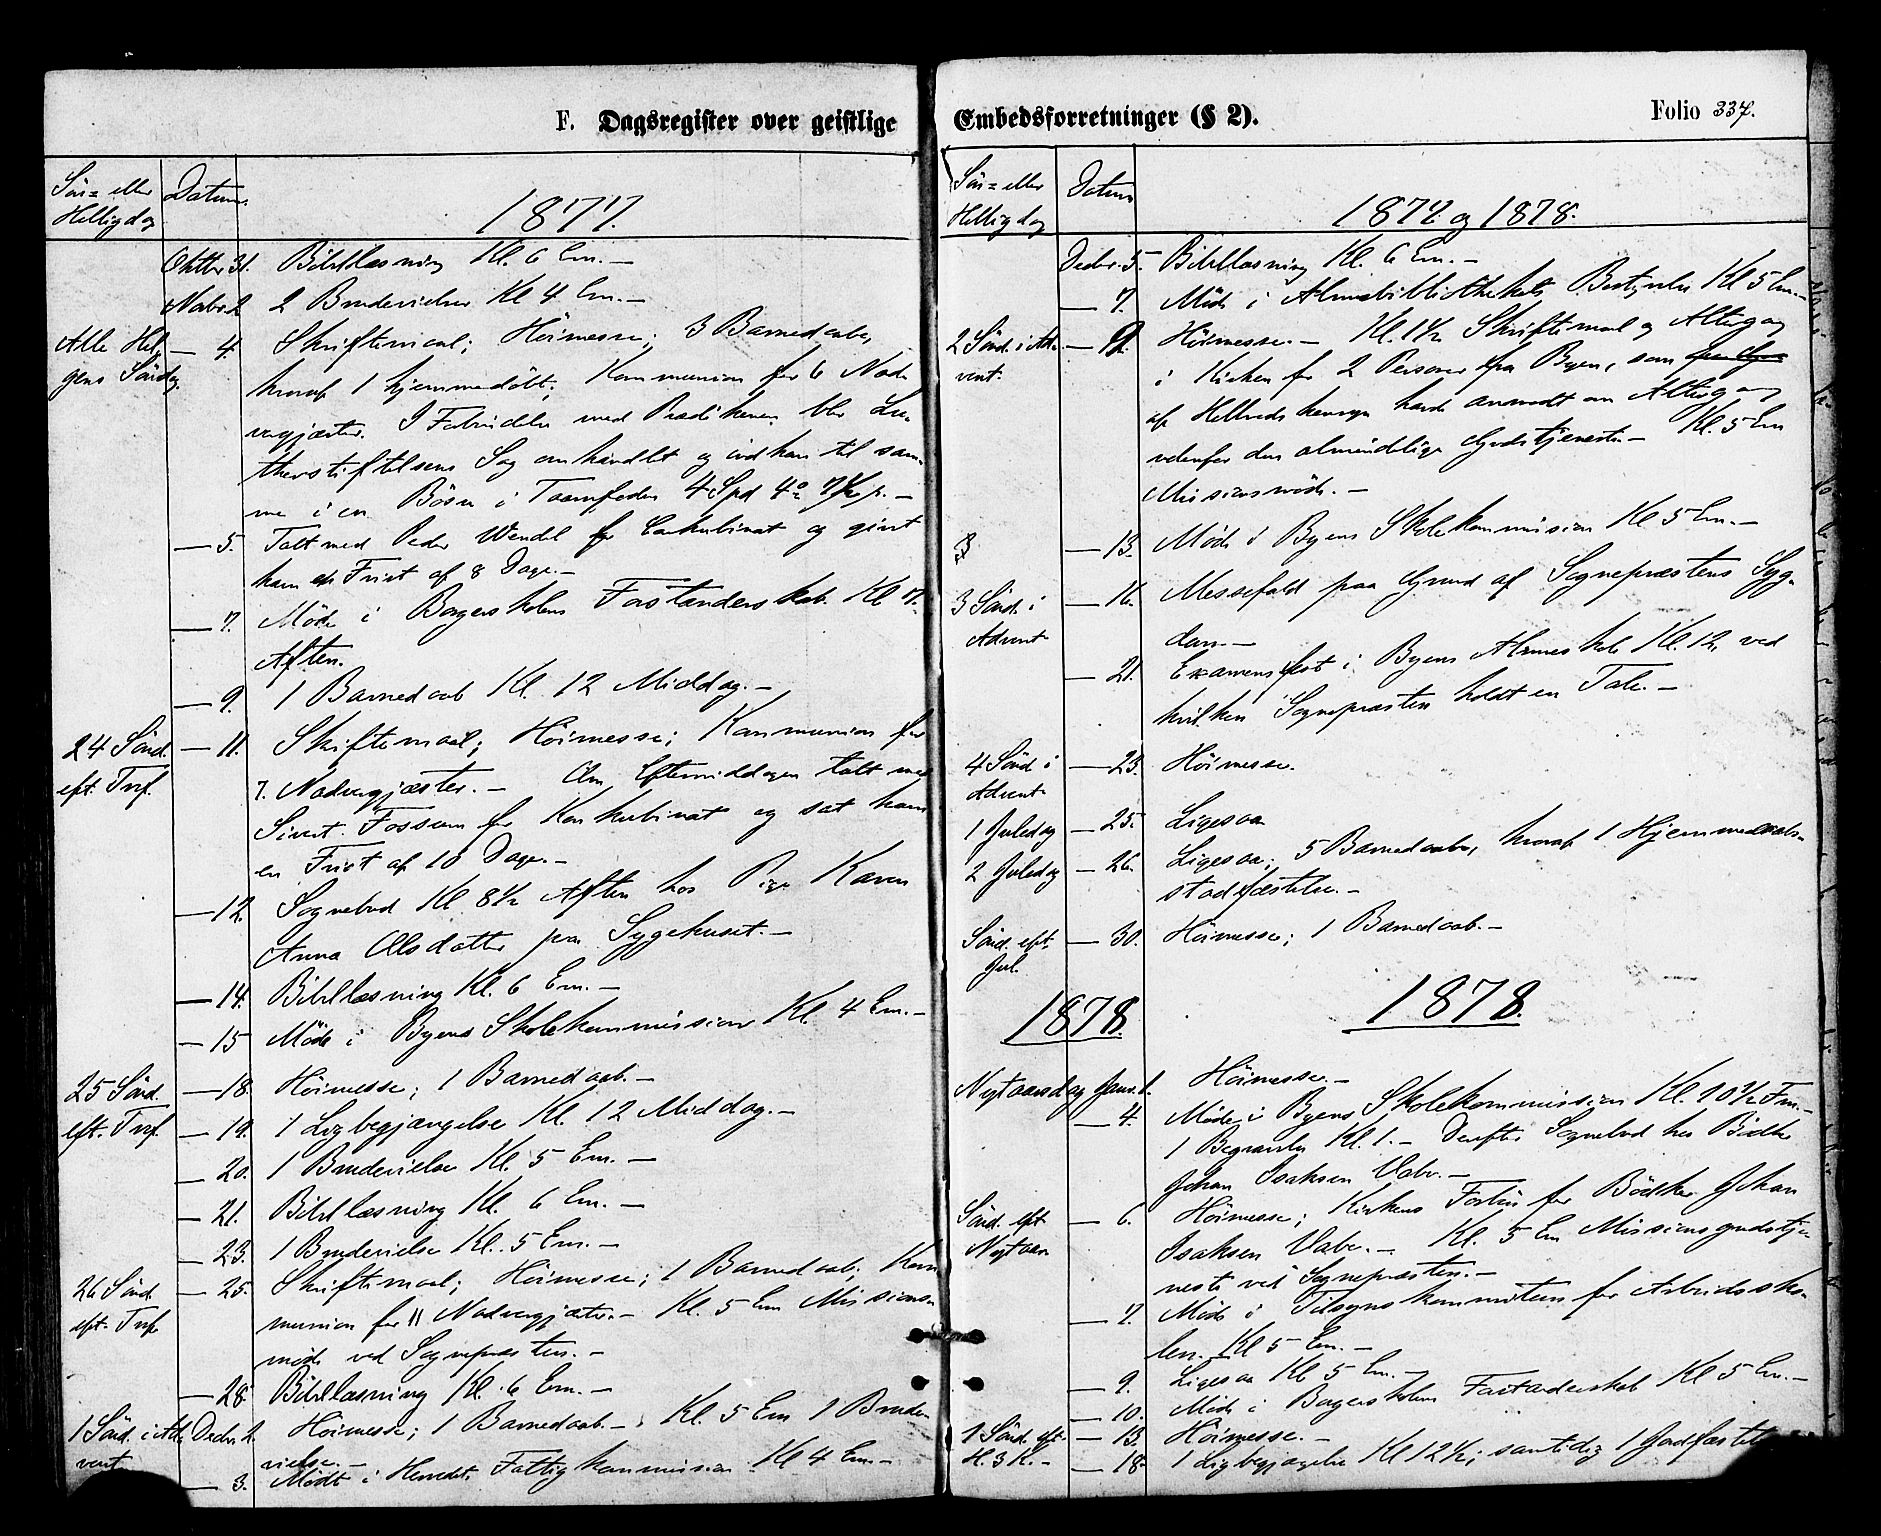 F. Dagsregister over geistlige
Søn= eller Helligdag
Datum.
1877.
Oktbr 31. Bibellæsning Kl. 6 Em. —
Novbr. 2 2 Brudevielser Kl 4 Em. —
Alle Hel — 4. Skriftemaal; Høimesse; 3 Barnedaabe,
gens Søndag. hvoraf 1 hjemmedøbt; Kommunion for 6 Nad-
vergjæster. I Forbindelse med Prædikenen blev Lu-
therstiftelsens Sag omhandlet og indkom til sam-
me i en Bøsse i Taarnfoden 4 Spd
— 5. Talt med Peder Wendel for Conkubinat og givet
ham en Frist af 8 Dage. —
— 7. Møde i Borgerskolens Forstanderskab Kl 7.
Aften.
— 9. 1 Barnedaab Kl. 12 Middag. —
24 Sønd. — 11. Skriftemaal; Høimesse; Kommunion for
eft. Tref. 7. Nadvergjæster. — Om Eftermiddagen talt med
Sivert Fossum for Konkubinat og sat ham
en Frist af 10 Dage. —
— 12. Sognebud Kl 8½ Aften hos Pige Karen
Anna Olsdatter paa Sygehuset. —
— 14. Bibellæsning Kl. 6 Em. —
— 15 Møde i Byens Skolekommission Kl. 4 Em. —
25 Sønd. — 18. Høimesse; 1 Barnedaab. —
eft. Tref. — 19. 1 Ligbegjængelse Kl. 12 Middag. —
— 20. 1 Brudevielse Kl. 5 Em. —
— 21. Bibellæsning Kl. 6 Em. —
— 23. 1 Brudevielse Kl. 5 Em. —
26 Sønd. — 25. Skriftemaal; Høimesse; 1 Barnedaab; Kom
eft. Tref. munion for 11 Nadvergjæster. — Kl. 5 Em Missions-
møde ved Sognepræsten. —
— 28. Bibellæsning Kl. 6 Em. —
1 Sønd. i Ad- Decbr. 2. Høimesse; 1 Barnedaab. — Kl. 5 Em 1 Brude-
vent vielse. —
— 3. Mødt i Herredets Fattigkommission Kl 4 Em. —
Embedsforretninger (§ 2).
Folio 337.
Søn= eller Helligdag
Datum
1877 og 1878.
Decbr. 5. Bibellæsning Kl. 6 Em. —
— 7. Møde i Almuebibliothekets Bestyrelse Kl 5 Em. —
2 Sønd. i Ad- — 9. Høimesse. — Kl. 1½ Skriftemaal og Altergang
vent. i Kirken for 2 Personer fra Byen, som
af Helbreds hensyn havde anmodet om Altergang
udenfor den almindelige Gudstjeneste. — Kl. 5 Em
Missionsmøde. —
— 13. Møde i Byens Skolekommission Kl 5 Em. —
3 Sønd. i — 16. Messefald paa Grund af Sognepræstens Syg-
Advent dom. —
— 21. Examensfest i Byens Almueskole Kl. 12, ved
hvilken Sognepræsten holdt en Tale. —
4 Sønd i — 23. Høimesse.
Advent
1 Juledag — 25. Ligesaa
2 Juledag — 26. Ligesaa; 5 Barnedaabe, hvoraf 1 Hjemmedaabs-
stadfæstelse. —
Sønd. eft. — 30. Høimesse; 1 Barnedaab. —
Jul.
1878. 1878.
Nytaarsdag Janr. 1. Høimesse. —
— 4. Møde i Byens Skolekommission Kl. 10½ Fm. —
1 Begravelse Kl. 1. — Derefter Sognebud hos Bødker
Johan Isaksen Vabe. —
Sønd. eft — 6. Høimesse; Kirkens Forbøn for Bødker Johan
Nytaar Isaksen Vabe. — Kl. 5 Em Missionsgudstje-
neste ved Sognepræsten. —
— 7. Møde i Tilsynskommitteen for Arbeidssko-
len. Kl 5 Em. —
— 9. Ligesaa Kl 5 Em. —
— 10. Møde i Borgerskolens Forstanderskab Kl 5 Em. —
1 Sønd. eft. — 13. Høimesse. —
H. 3 K. — — 18. 1 Ligbegjængelse Kl 12½; samtidig 1 Jordfæstelse